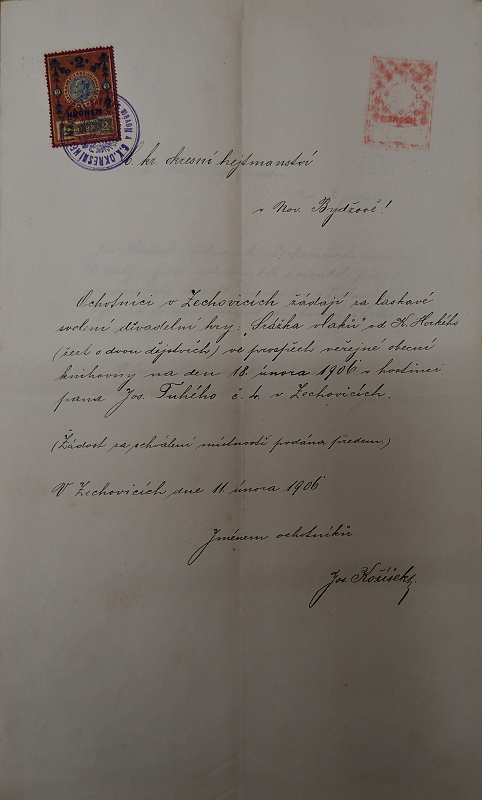 2
KRONEN
C. kr. okresní hejtmanství
v Nov. Bydžově!
Ochotníci v Zechovicích žádají za laskavé
svolení divadelní hry: "Srážka vlaků" od K. Horkého
(žert o dvou dějstvích) ve prospěch veřejné obecní
knihovny na den 18. února 1906 v hostinci
pana Jos. Tuhého č. 4 v Zechovicích.
(Žádost za schválení místnosti podána předem.)
V Zechovicích dne 11. února 1906
Jménem ochotníků
Jos. Kožíšek